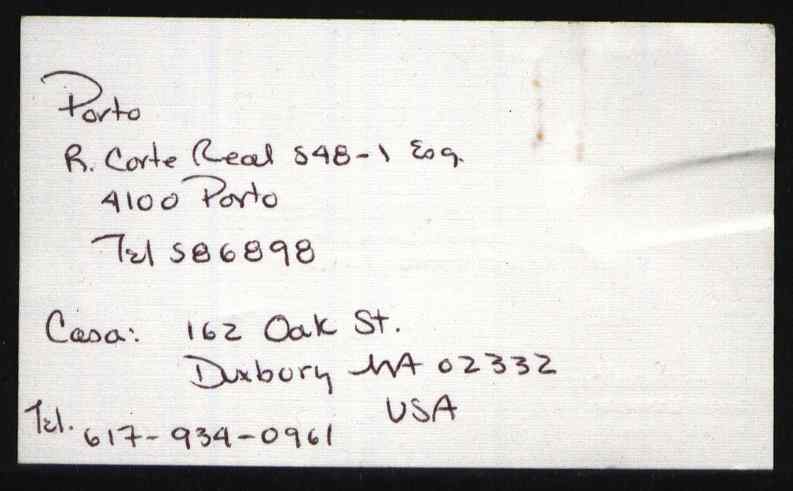 Porto
R. Corte Real 548-1 Esq.
4100 Porto
Tel 586898
Casa: 162 Oak St.
Duxbury MA 02332
USA
Tel. 617-934-0961